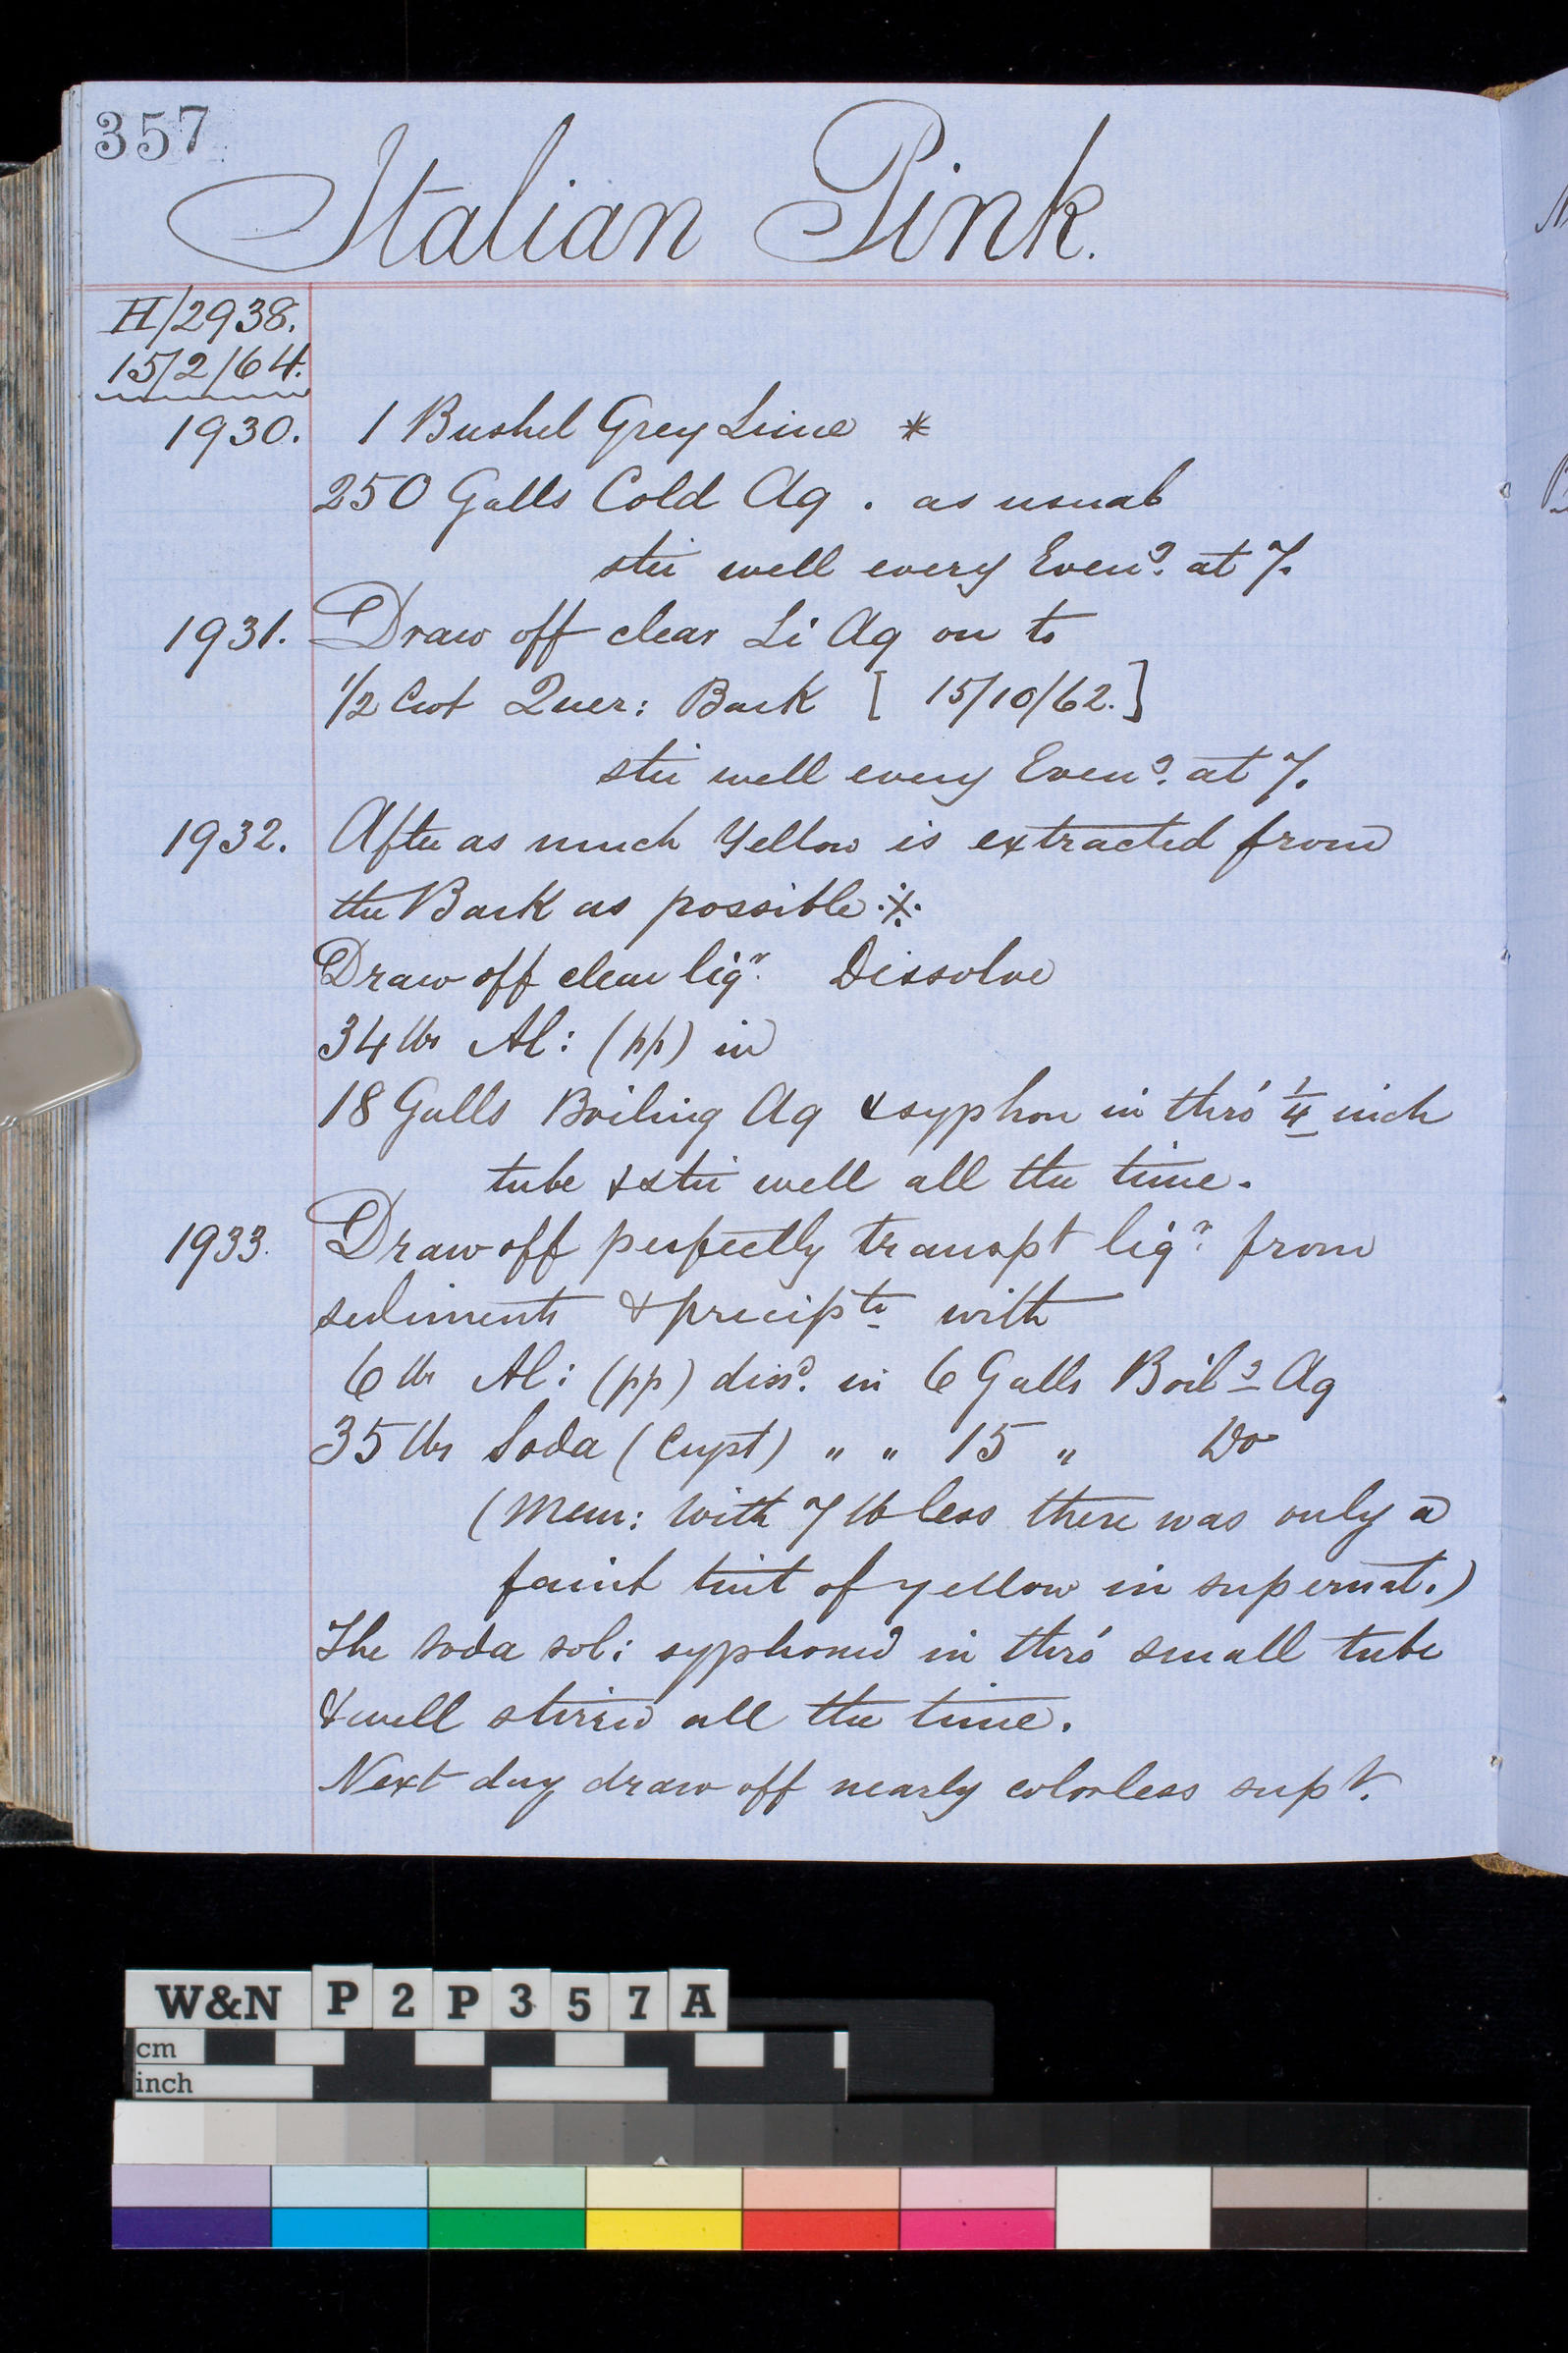 357
Italian Pink.
H/2938.
15/2/64.
1930. 1 Bushel Grey Lime *
250 Galls Cold Aq . as usual
stir well every Eveng. at 7.
1931. Draw off clear Li Aq on to
1/2 Cwt Quer: Bark [ 15/10/62.]
stir well every Eveng. at 7.
1932. After as much Yellow is extracted from
the Bark as possible ※
Draw off clear liqr. Dissolve
34 lbs Al: (pp) in
18 Galls Boiling Aq & syphon in thro' 1/4 inch
tube & stir well all the time.
1933. Draw off perfectly transpt liqr. from
sediments & precipte with
6 lbs Al: (pp) dissd. in 6 Galls Boilg Aq
35 lbs Soda (Cryst) " " 15 " Do
(Mem: With 7 lb less there was only a
faint tint of yellow in supernat.)
The Soda sol: syphon'd in thro' small tube
& well stirr'd all the time.
Next day draw off nearly colorless supt.
W&N P2P357A
cm
inch